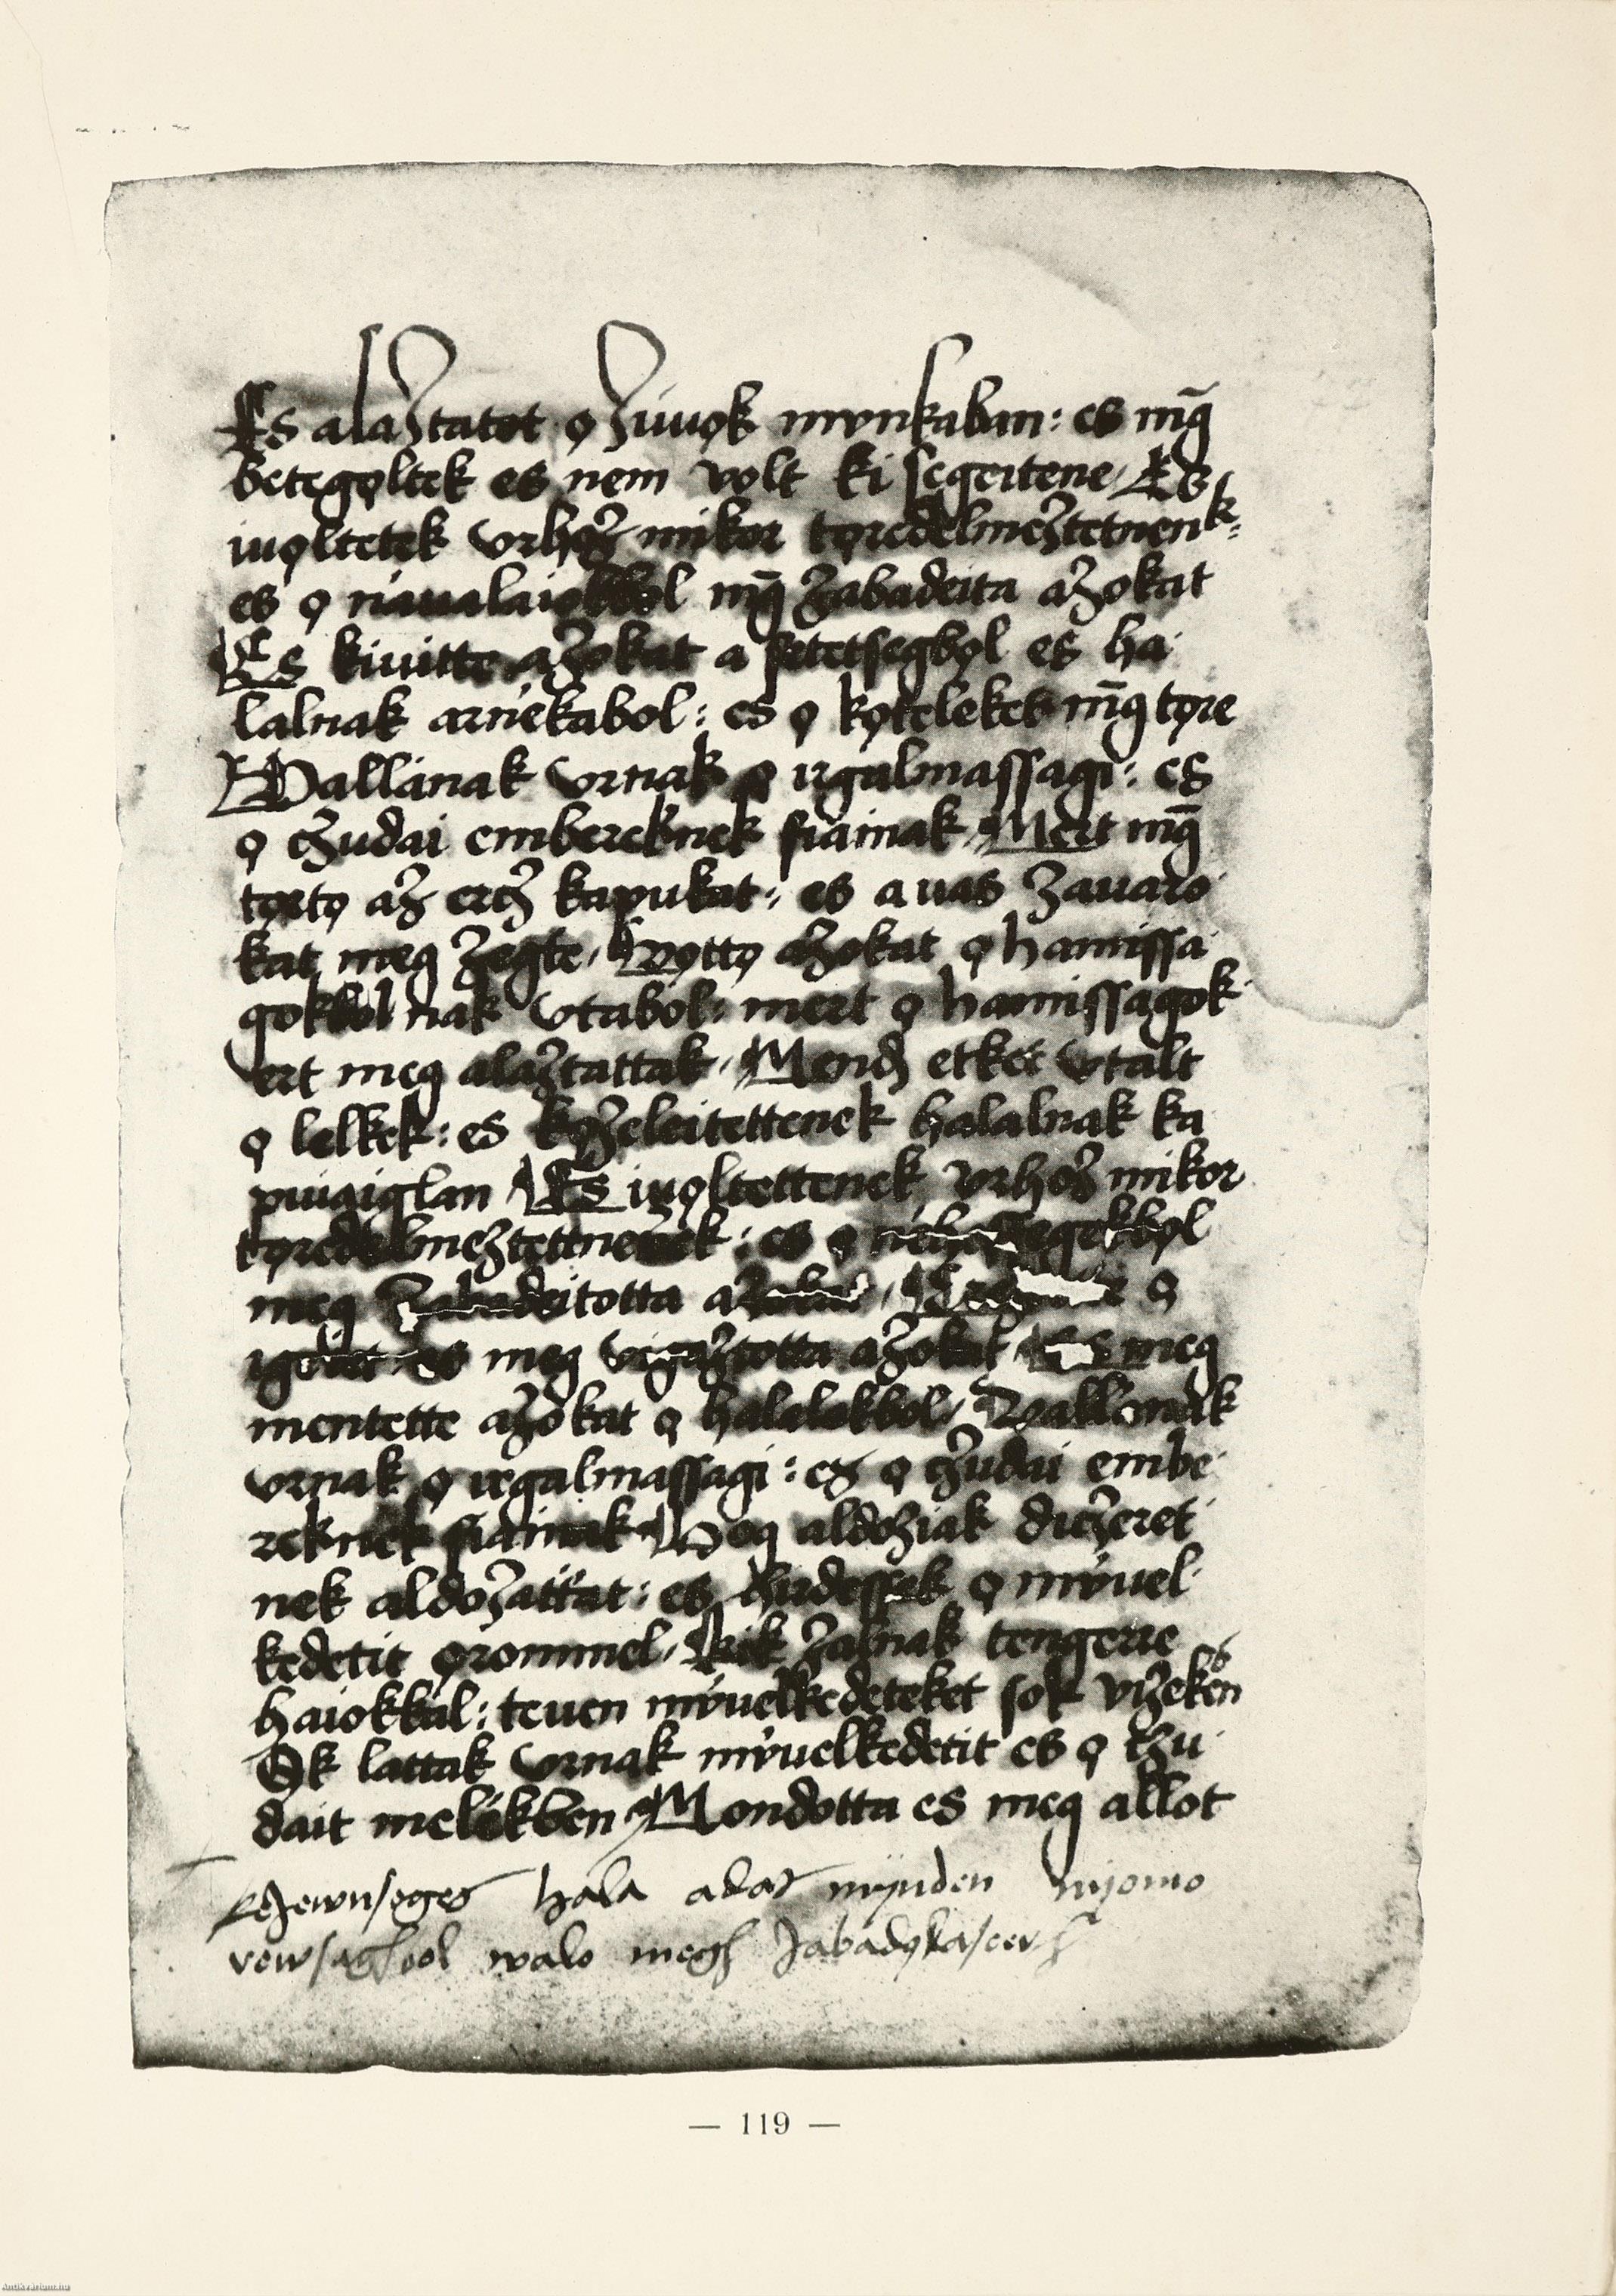 Es alaʒtatot ǫ ʒiuǫk munkaban: es mg̅
betegǫltek es nem volt ki segeitene, Es
iuǫltetek vrhoʒ mikor tǫredelmeʒtetnenk:
es ǫ niaualaiokbol mg̅ ʒabadeita aʒokat
Es kiuitte aʒokat a setetsegbǫl es ha
lalnak arńekabol: es ǫ kǫteleket mg̅ tǫre
Vallanak vrnak ǫ irgalmassagi: es
ǫ cʒudai embereknek fiainak, Mert mg̅
tǫrtǫ aʒ ercʒ kapukat: es a vas ʒauaro
kat meg ʒegte, Vǫttǫ aʒokat ǫ hamissa
gokbol nak vtabol: mert ǫ hamissagok
ert meg alaʒtattak, Mendʒ etket vtalt
ǫ lelkek: es kǫʒeleitettenek halalnak ka
puiaiglan Es iuǫltettenek vrhoʒ mikor
tǫredelmeʒtettnenek: es ǫ
meg ʒabadeitotta
igeiet es meg vigaʒtotta aʒokat, Es meg
mentette aʒokat ǫ halalokbol, Vallanak
vrnak ǫ irgalmassagi: es ǫ cʒudai embe
reknek fiainak Hog aldoʒiak diczeret
nek aldoʒattat: es hirdessek ǫ mǘuel
kedetit ǫrommel, Kik ʒalnak tengerre
haiokkal: teuen mǘuelkedeteket sok viʒeken es
Ok lattak vrnak mǘuelkedetit es ǫ cʒu
dait melékben, Mondotta es meg allot
hala adas mynden nyomo
rewsaghbol walo megh ʒabadt
— 119 —
Antikvarium.hu